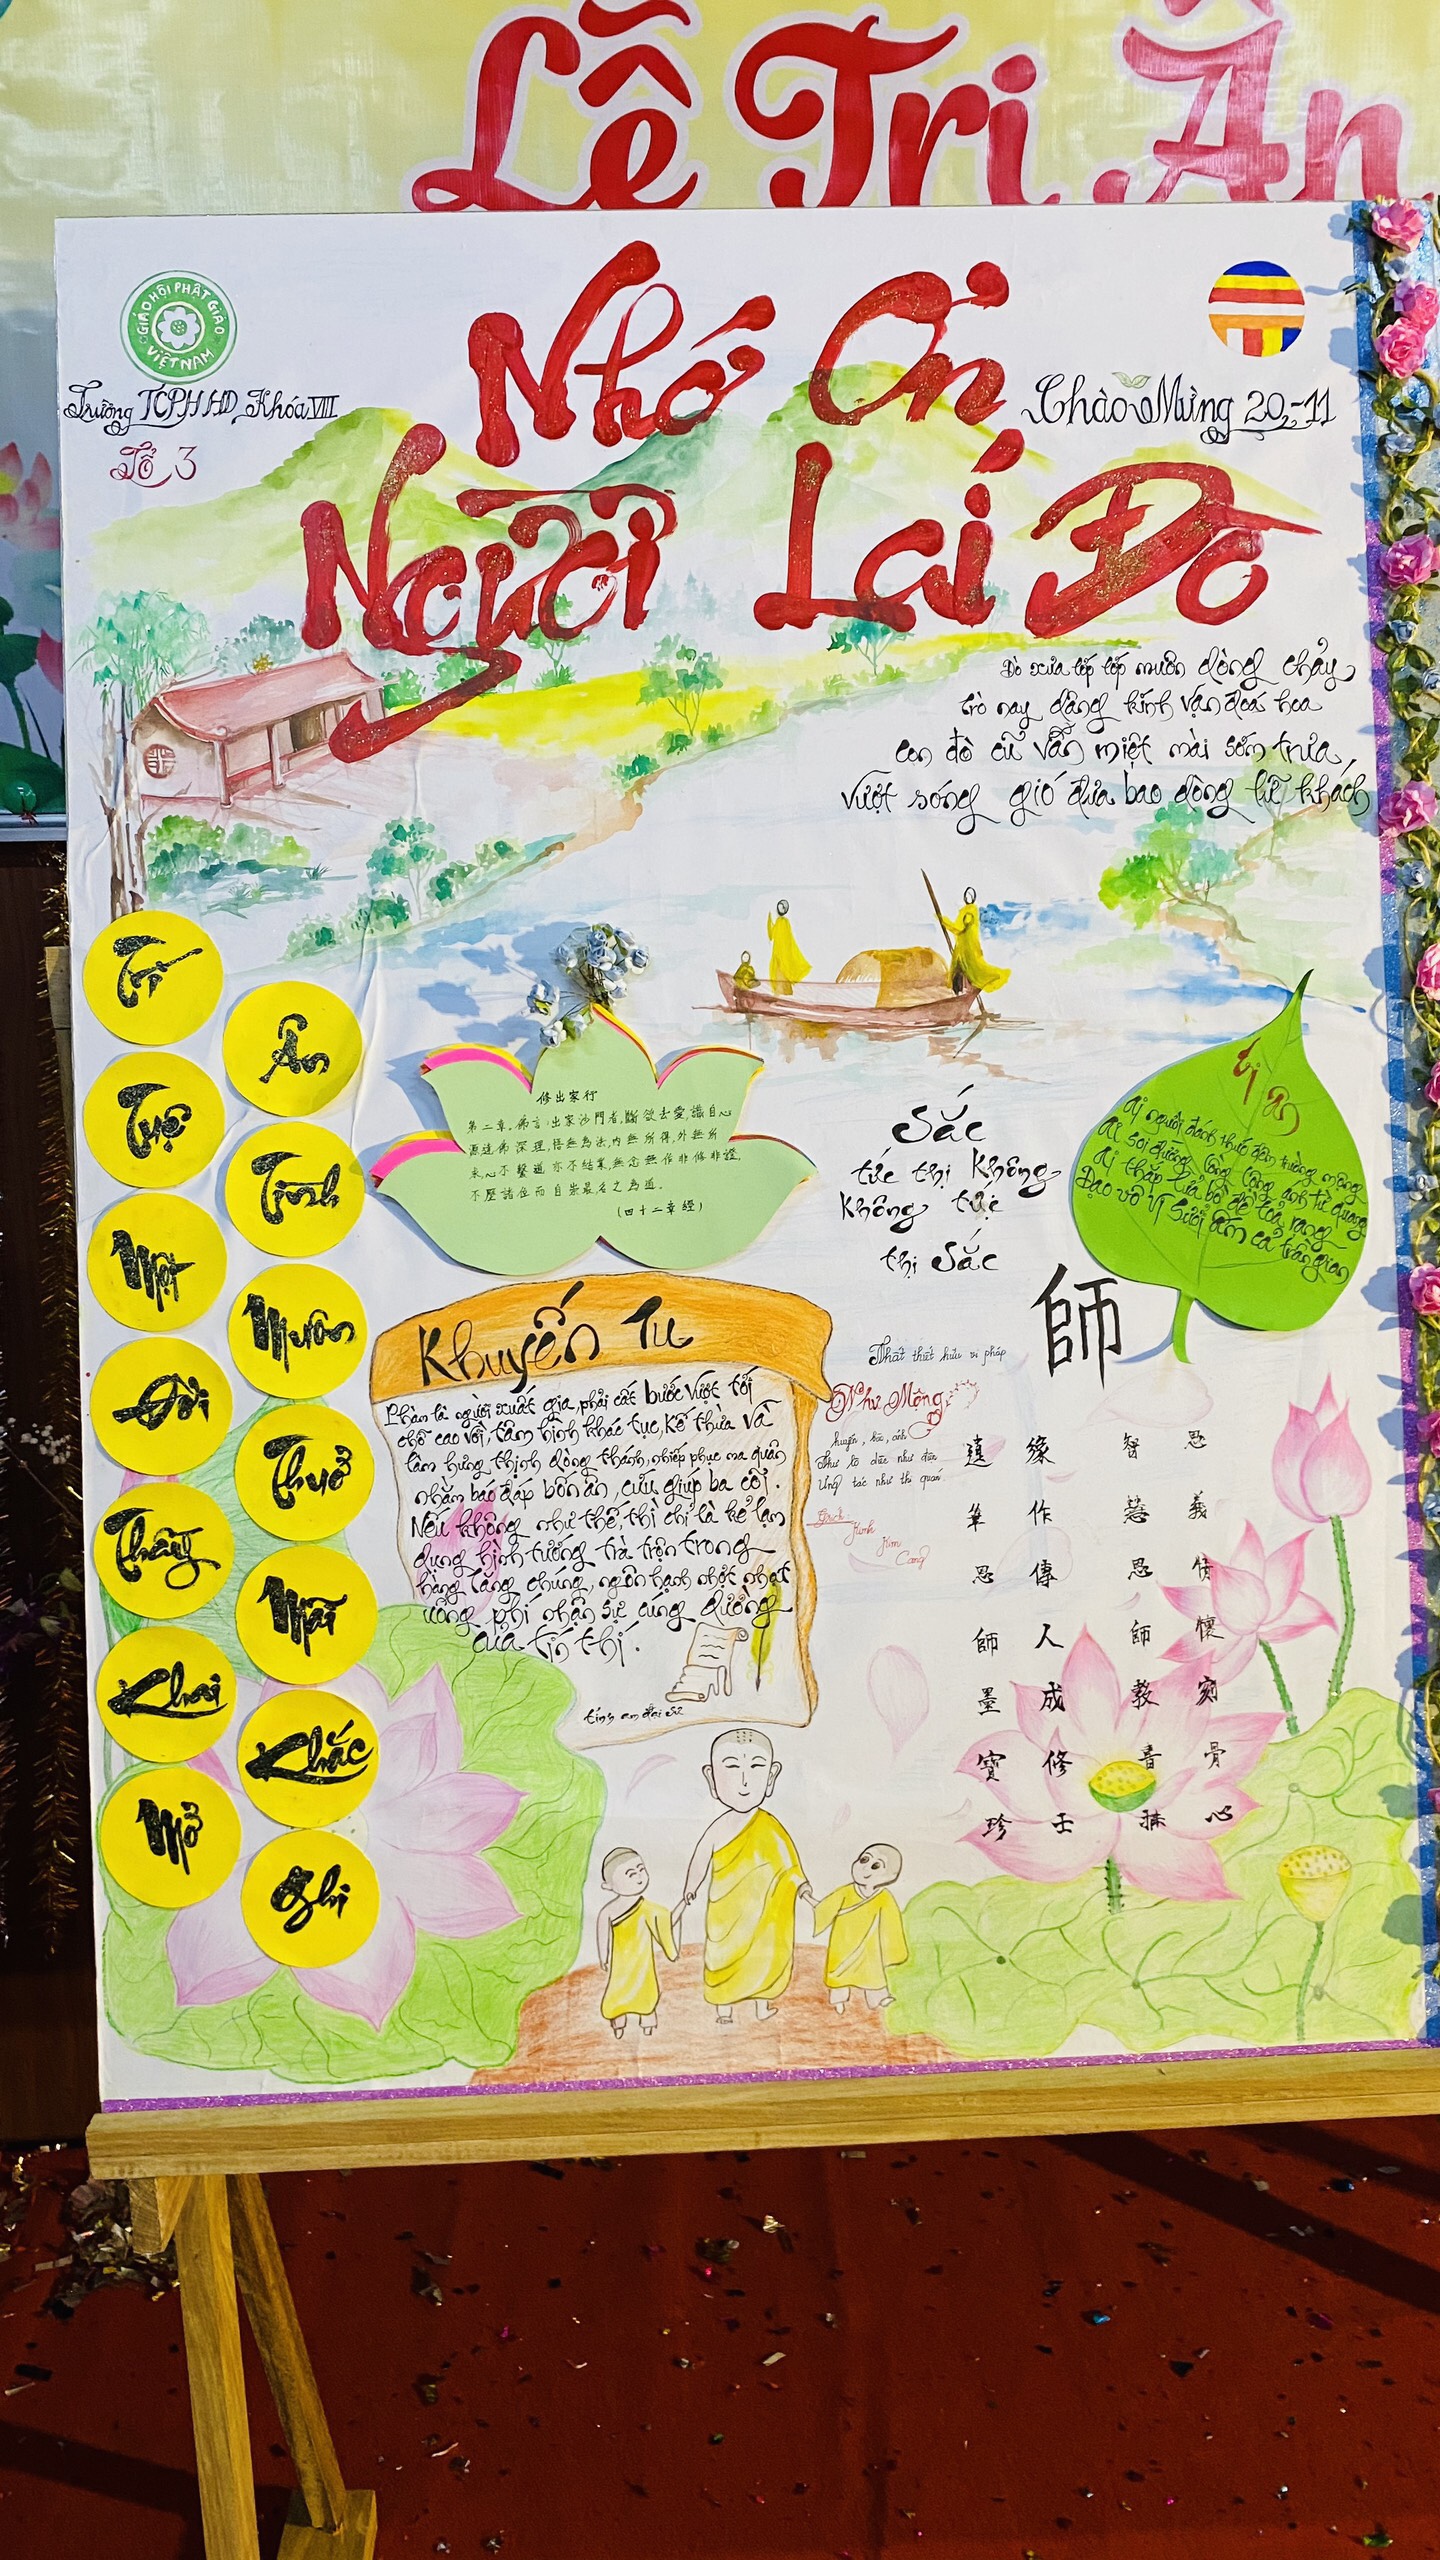 Lễ Tri Ân
GIÁO HỘI PHẬT GIÁO
VIỆT NAM
Trường TCPH HD Khóa VIII
Tổ 3
Chào Mừng 20-11
Nhớ Ơn
Người Lái Đò
Đò xưa lớp lớp muôn dòng chảy
trò nay dâng kính vạn đoá hoa
con đò cũ vẫn miệt mài sớm trưa
Vượt sóng gió đưa bao dòng lữ khách
Tri Ân
Tuệ Tình
Một Muôn
Đời Thuở
Thầy Mãi
Khai Khắc
Mở Ghi
修出家行
第二章。佛言:出家沙門者,斷欲去愛識自心
源達佛深理,悟無為法,內無所得,外無所
求,心不繫道亦不結業,無念無作非修非證,
不歷諸位而自崇最名之為道。
(四十二章經)
Sắc
tức thị Không
Không tức
thị Sắc
tri ân
Ai người đánh thức đêm trường mộng
Ai soi đường
Ai thắp lửa bồ đề toả rạng
Đạo vô vi sưởi ấm cả trần gian
師
Khuyến Tu
Phàm là người xuất gia, phải cất bước vượt tới
chỗ cao vời, tâm hình khác tục, kế thừa và
làm hưng thịnh dòng thánh, nhiếp phục ma quân
nhằm báo đáp bốn ân, cứu giúp ba cõi.
Nếu không như thế, thì chỉ là kẻ lạm
dụng hình tướng trà trộn trong
hàng tăng chúng, ngôn hạnh nhợt nhạt
uổng phí nhận sự cúng dường
của tín thí.
Nhất thiết hữu vi pháp
Như Mộng
huyễn, bào, ảnh
Như lộ diệc như điển
Ưng tác như thị quán
Kinh
Kim
Cang
恩義情懷刻骨心
智慧恩師教音
緣作傳人成修士
筆恩師墨寶珍